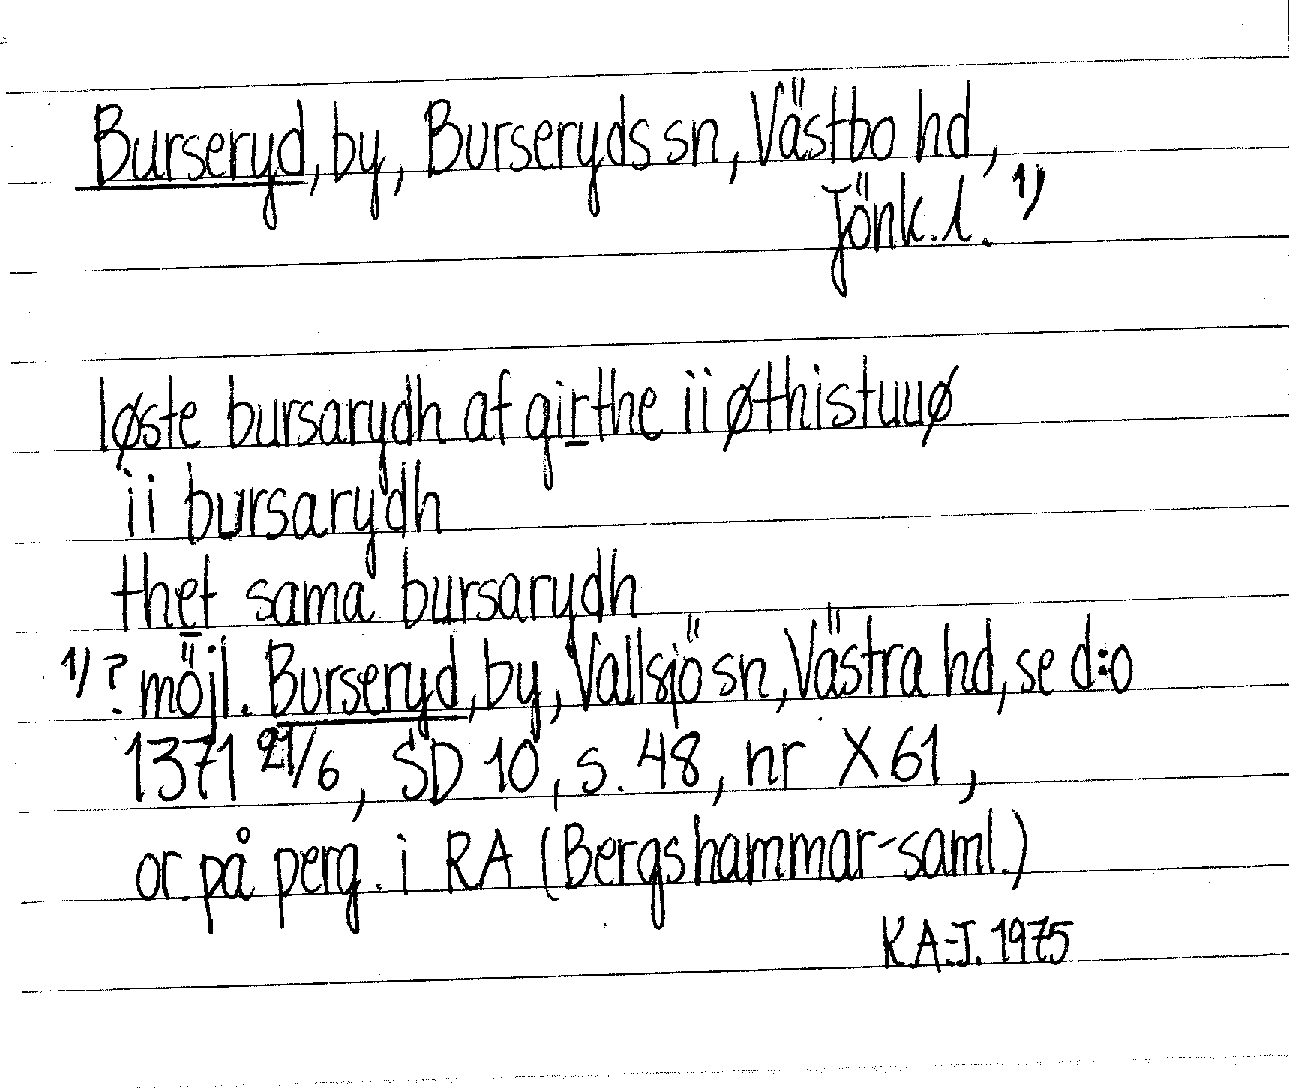 Burseryd, by, Burseryds sn, Västbo hd,
Jönk. l. 1)
løste bursarydh af girthe ii øthistuuø
ii bursarydh
thet sama bursarydh
1) ? möjl. Burseryd, by, Vallsjö sn, Västra hd, se d:o
1371 21/6, SD 10, s. 48, nr X 61,
or. på perg. i RA (Bergshammar-saml.)
K A-J. 1975